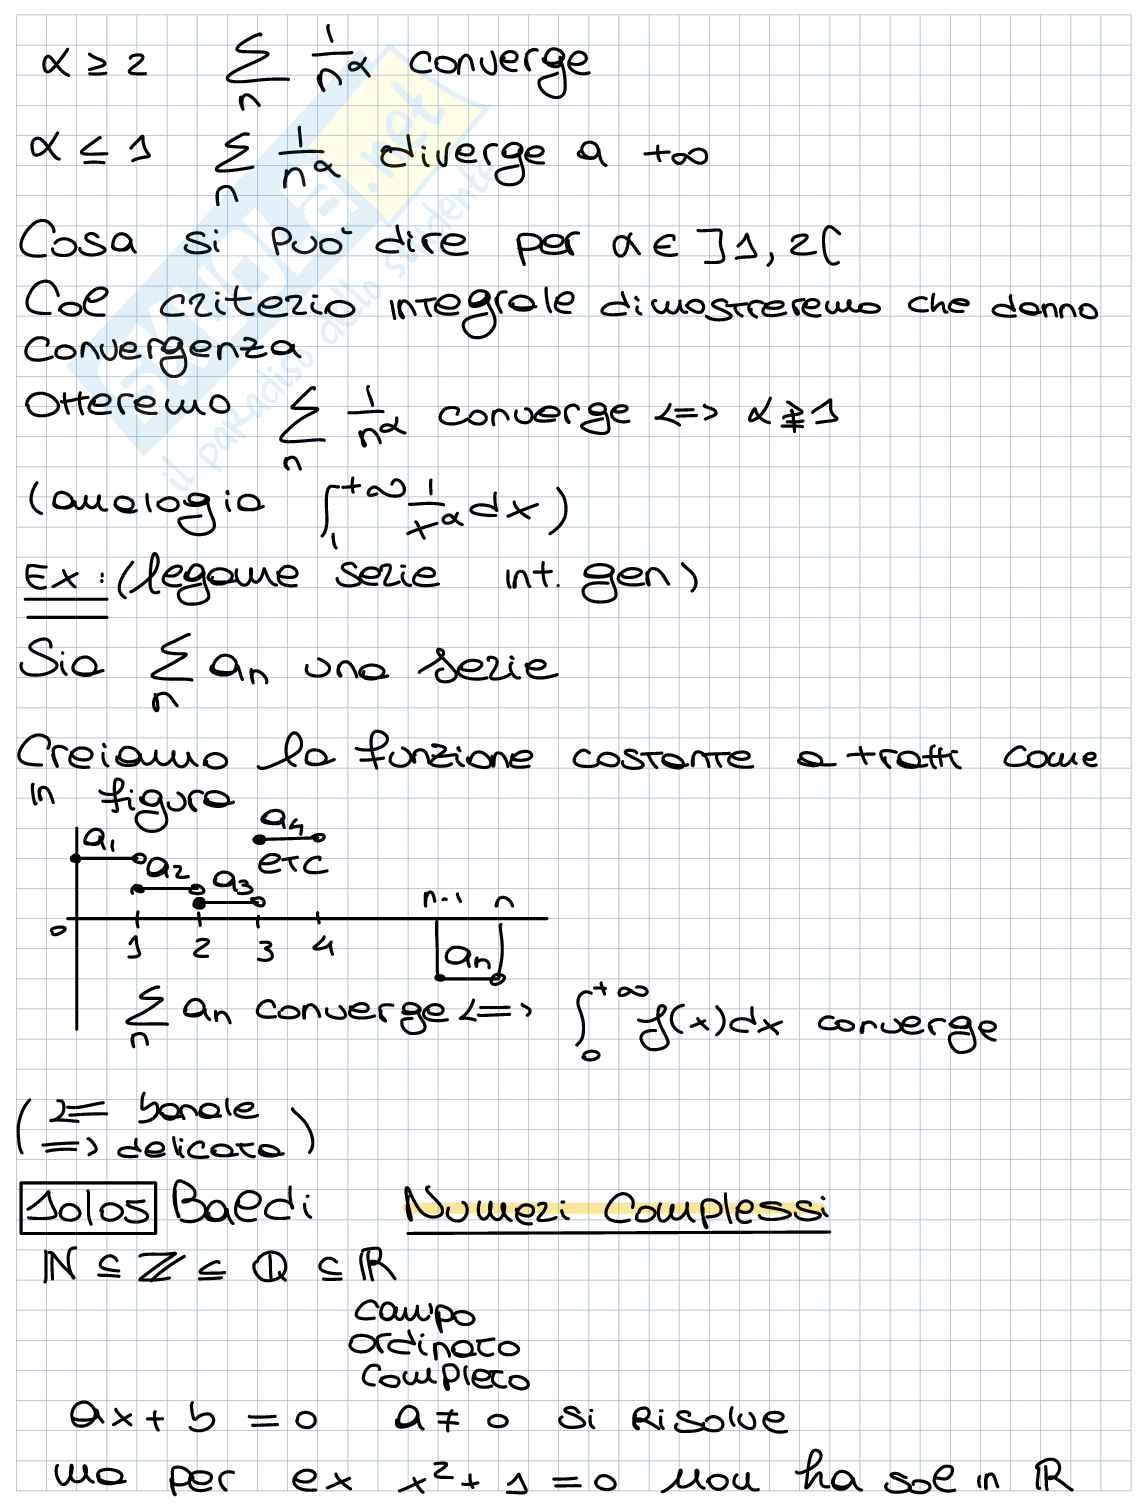 α ≥ 2 ∑n 1/n^α converge
α ≤ 1 ∑n 1/n^α diverge a +∞
Cosa si può dire per α ∈ ]1, 2[
Col criterio integrale dimostreremo che danno
convergenza
Otteremo ∑n 1/n^α converge <=> α ≩ 1
(analogia ∫₁^+∞ 1/x^α dx)
Ex: (legame serie int. gen)
Sia ∑n an una serie
Creiamo la funzione costante a tratti come
in figura
a4
a1
a2 a3 etc
n-1 n
0 1 2 3 4
an
∑n an converge <=> ∫₀^+∞ f(x)dx converge
(<= banale
=> delicata)
10105 Baldi Numeri Complessi
ℕ ⊆ ℤ ⊆ ℚ ⊆ ℝ
campo
ordinato
completo
ax + b = 0 a ≠ 0 si risolve
ma per ex x² + 1 = 0 non ha sol in ℝ
.net
il paradiso dello studente